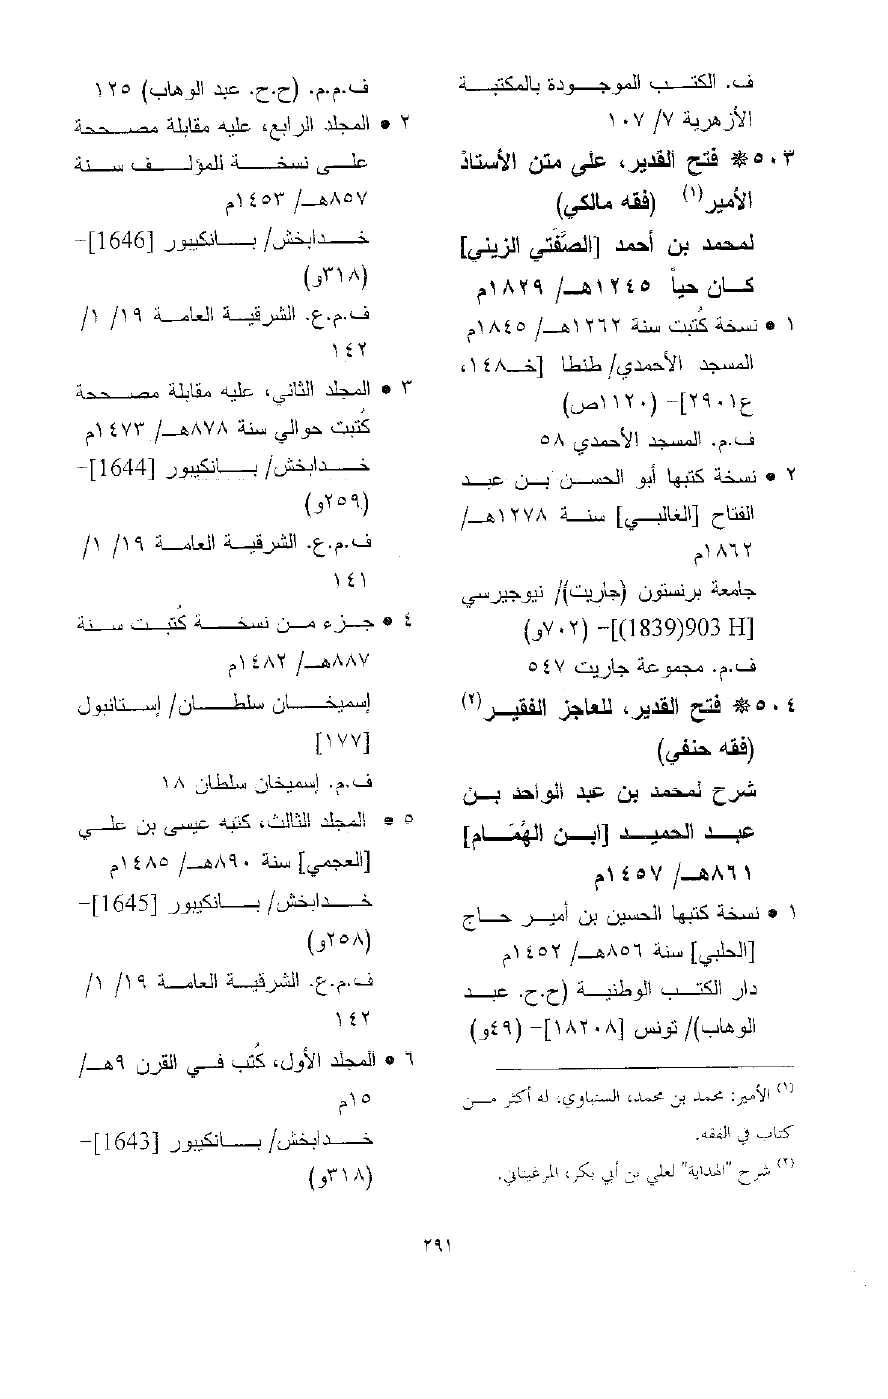 ف. الكتب الموجودة بالمكتبة
الأزهرية ٧/ ١٠٧
٥٠٣ * فتح القدير، على متن الأستاذ
الأمير(١) (فقه مالكي)
لمحمد بن أحمد [الصَّفَتي الزيني]
كان حياً ١٢٤٥هـ/ ١٨٢٩م
١ • نسخة كُتبت سنة ١٢٦٢هـ/ ١٨٤٥م
المسجد الأحمدي/ طنطا [خـ١٤٨،
ع٢٩٠١]- (١١٢٠ص)
ف.م. المسجد الأحمدي ٥٨
٢ • نسخة كتبها أبو الحسن بن عبد
الفتاح [الغالبي] سنة ١٢٧٨هـ/
١٨٦٢م
جامعة برنستون (جاريت)/ نيوجيرسي
[903 H(1839)]- (٧٠٢و)
ف.م. مجموعة جاريت ٥٤٧
٥٠٤ * فتح القدير، للعاجز الفقير(٢)
(فقه حنفي)
شرح لمحمد بن عبد الواحد بن
عبد الحميد [ابن الهُمَام]
٨٦١هـ/ ١٤٥٧م
١ • نسخة كتبها الحسين بن أمير حاج
[الحلبي] سنة ٨٥٦هـ/ ١٤٥٢م
دار الكتب الوطنية (ح.ح. عبد
الوهاب)/ تونس [١٨٢٠٨]- (٤٩و)
(١) الأمير: محمد بن محمد، السنباوي. له أكثر من
كتاب في الفقه.
(٢) شرح "الهداية" لعلي بن أبي بكر، المرغيناني.
ف.م.م. (ح.ح. عبد الوهاب) ١٢٥
٢ • المجلد الرابع، عليه مقابلة مصححة
على نسخة المؤلف سنة
٨٥٧هـ/ ١٤٥٣م
خدابخش/ بانكيبور [1646]-
(٣١٨و)
ف.م.ع. الشرقية العامة ١٩/ ١/
١٤٢
٣ • المجلد الثاني، عليه مقابلة مصححة
كُتبت حوالي سنة ٨٧٨هـ/ ١٤٧٣م
خدابخش/ بانكيبور [1644]-
(٢٥٩و)
ف.م.ع. الشرقية العامة ١٩/ ١/
١٤١
٤ • جزء من نسخة كُتبت سنة
٨٨٧هـ/ ١٤٨٢م
إسميخان سلطان/ إستانبول
[١٧٧]
ف.م. إسميخان سلطان ١٨
٥ • المجلد الثالث، كتبه عيسى بن علي
[العجمي] سنة ٨٩٠هـ/ ١٤٨٥م
خدابخش/ بانكيبور [1645]-
(٢٥٨و)
ف.م.ع. الشرقية العامة ١٩/ ١/
١٤٢
٦ • المجلد الأول، كُتب في القرن ٩هـ/
١٥م
خدابخش/ بانكيبور [1643]-
(٣١٨و)
٢٩١